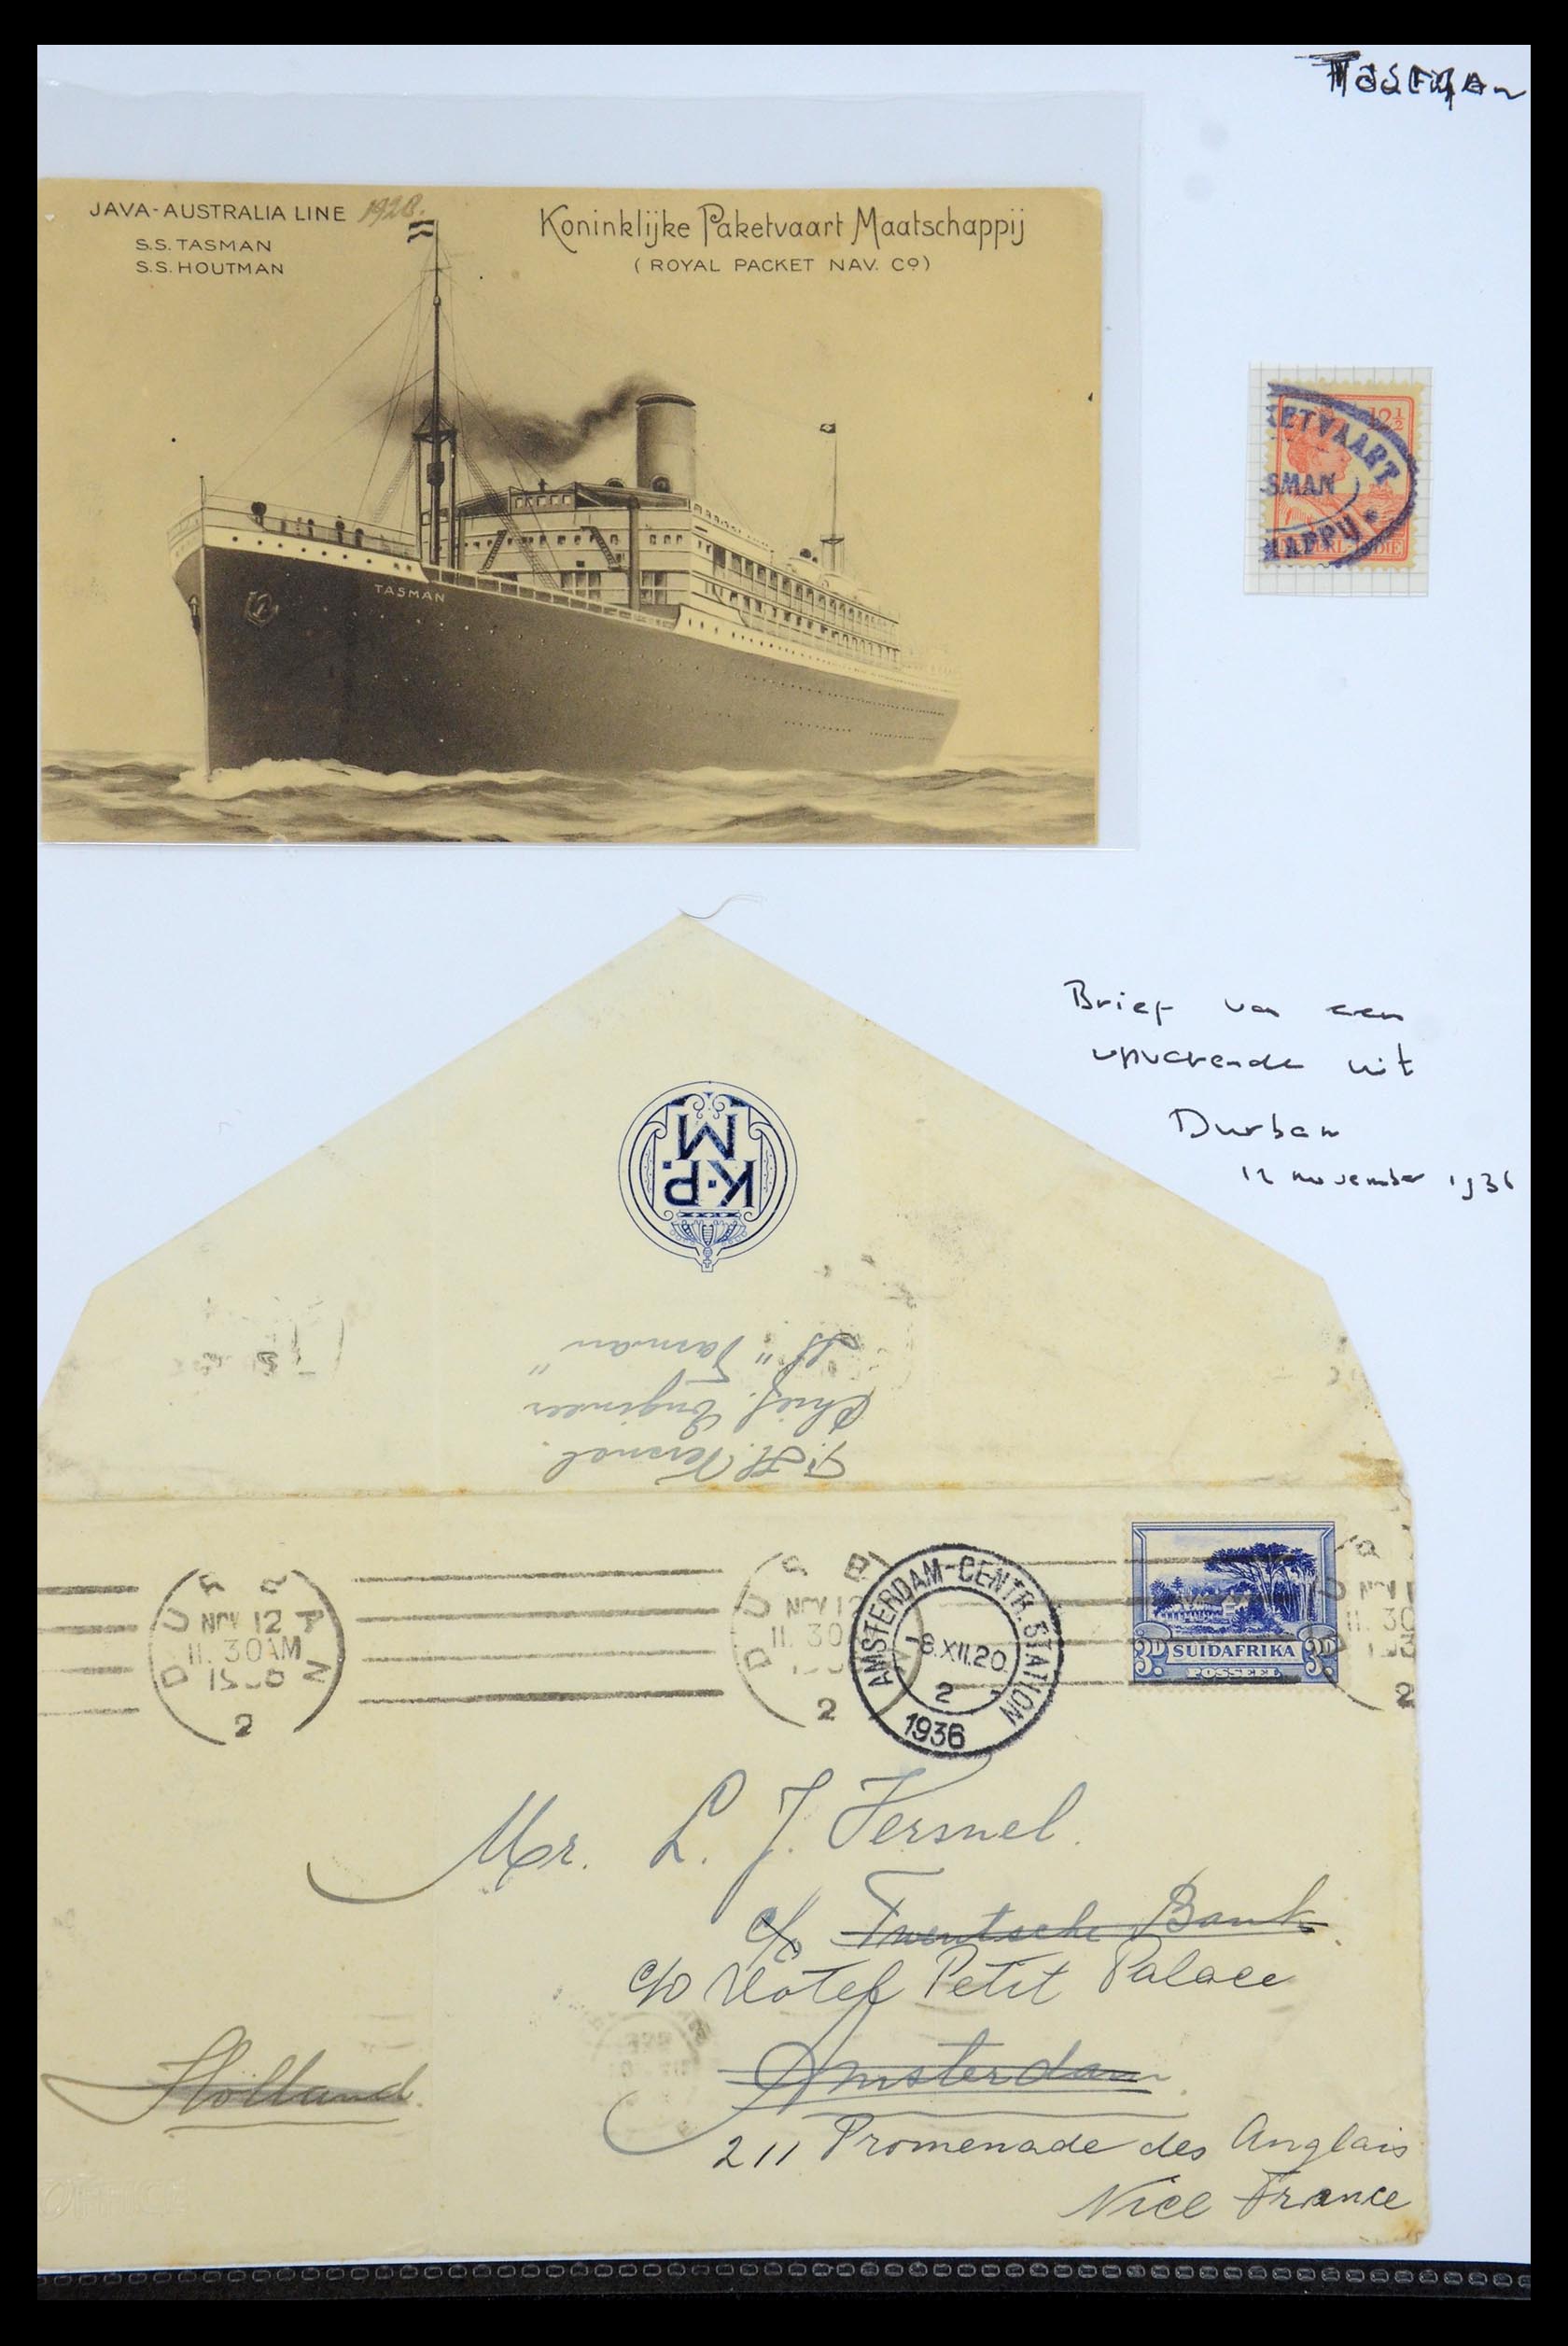 Tasman
JAVA-AUSTRALIA LINE 1928.
S.S. TASMAN
S.S. HOUTMAN
Koninklijke Paketvaart Maatschappij
(ROYAL PACKET NAV. Co)
TASMAN
12½
KETVAART
SMAN
HAPPIJ *
Brief van een
opvarende uit
Durban
12 november 1936
K.P.
M.
Chief. Engineer
SS "Tasman"
DURBAN
NOV 12
11.30AM
2
DURB
NOV 12
11.30
2
AMSTERDAM-CENTR.STATION
-8.XII.20
2
1936
3D. SUIDAFRIKA 3D.
POSSEËL
NOV 1
11.30
193
2
Mr. L. J. Versnel.
c/o Twentsche Bank.
c/o Hotel Petit Palace
Amsterdam.
Holland.
211 Promenade des Anglais
Nice France